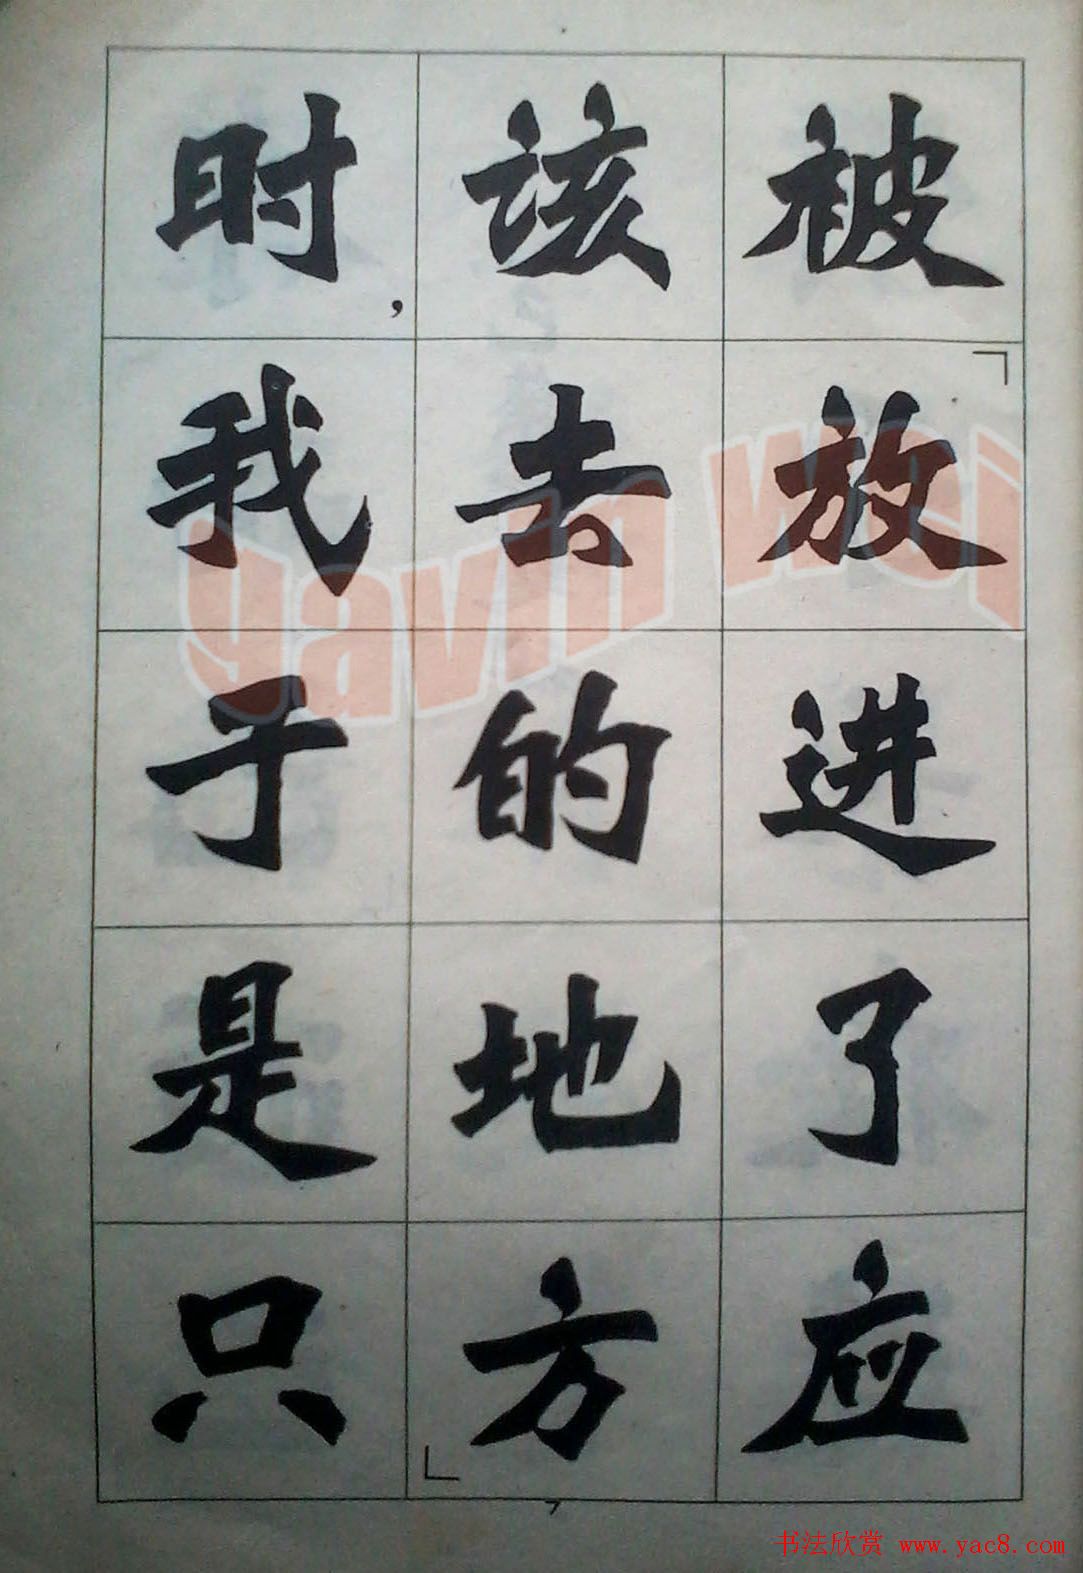 被「放进了应
该去的地方」
时,我于是只
7
yavin wei
书法欣赏 www.yac8.com